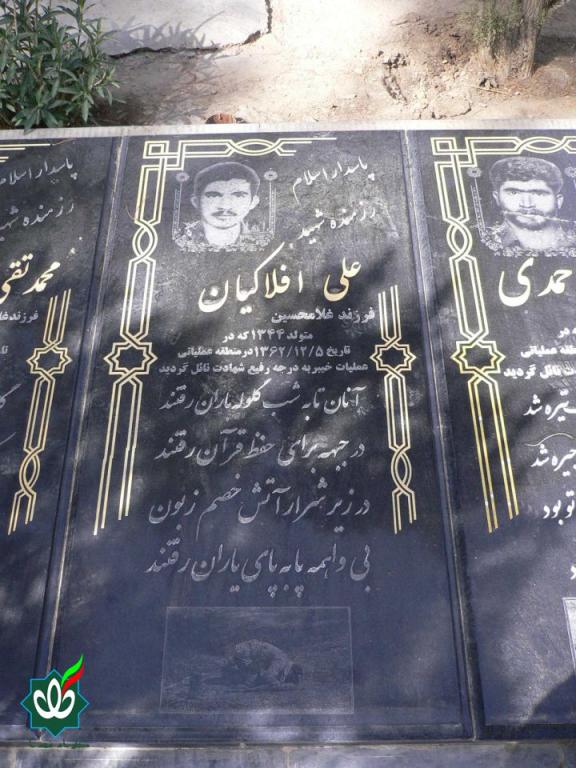 پاسدار اسلام
رزمنده شهید
علی افلاکیان
فرزند غلامحسین
متولد ۱۳۴۴ که در
تاریخ ۱۳۶۲/۱۲/۵ در منطقه عملیاتی
عملیات خیبر به درجه رفیع شهادت نائل گردید
آنان تا به شب گلوله باران رفتند
در جبهه برای حفظ قرآن رفتند
در زیر شرار آتش خصم زبون
بی واهمه پا به پای یاران رفتند
پاسدار اسلام
رزمنده شهید
محمد تقی
حمدی
که در
منطقه عملیاتی
شهادت نائل گردید
تیره شد
چیره شد
تو بود